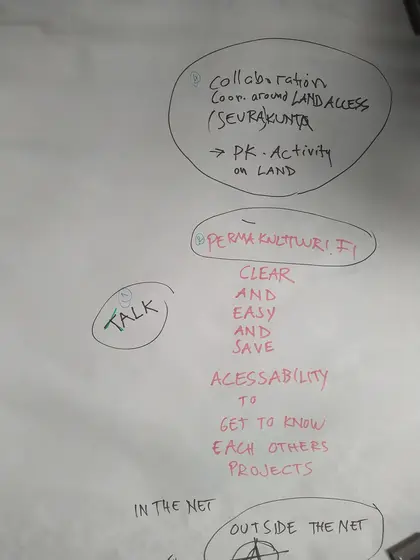 Collaboration
Coop. around LAND ACCESS
(SEURAKUNTA
→ PK - Activity
on LAND
PERMAKULTTUURI.FI
CLEAR
AND
EASY
AND
SAVE
TALK
ACESSABILITY
TO
GET TO KNOW
EACH OTHERS
PROJECTS
IN THE NET
OUTSIDE THE NET